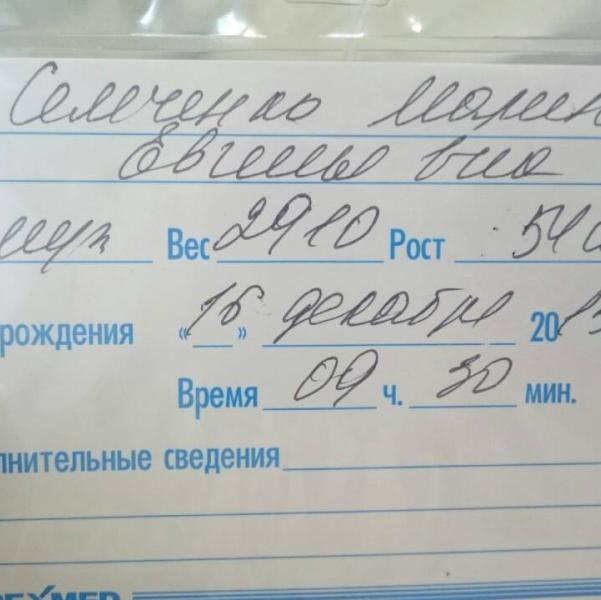 Семченко Марин
Евгеньевна
муж Вес 2910 Рост 54
рождения «16» декабря 20
Время 09 ч. 30 мин.
лнительные сведения